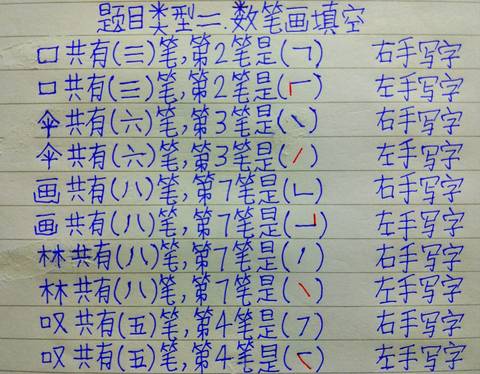 题目类型二.数笔画填空
口共有(三)笔,第2笔是(㇕) 右手写字
口共有(三)笔,第2笔是(┌) 左手写字
伞共有(六)笔,第3笔是(㇔) 右手写字
伞共有(六)笔,第3笔是(/) 左手写字
画共有(八)笔,第7笔是(∟) 右手写字
画共有(八)笔,第7笔是(┘) 左手写字
林共有(八)笔,第7笔是(㇓) 右手写字
林共有(八)笔,第7笔是(\) 左手写字
叹共有(五)笔,第4笔是(㇇) 右手写字
叹共有(五)笔,第4笔是() 左手写字